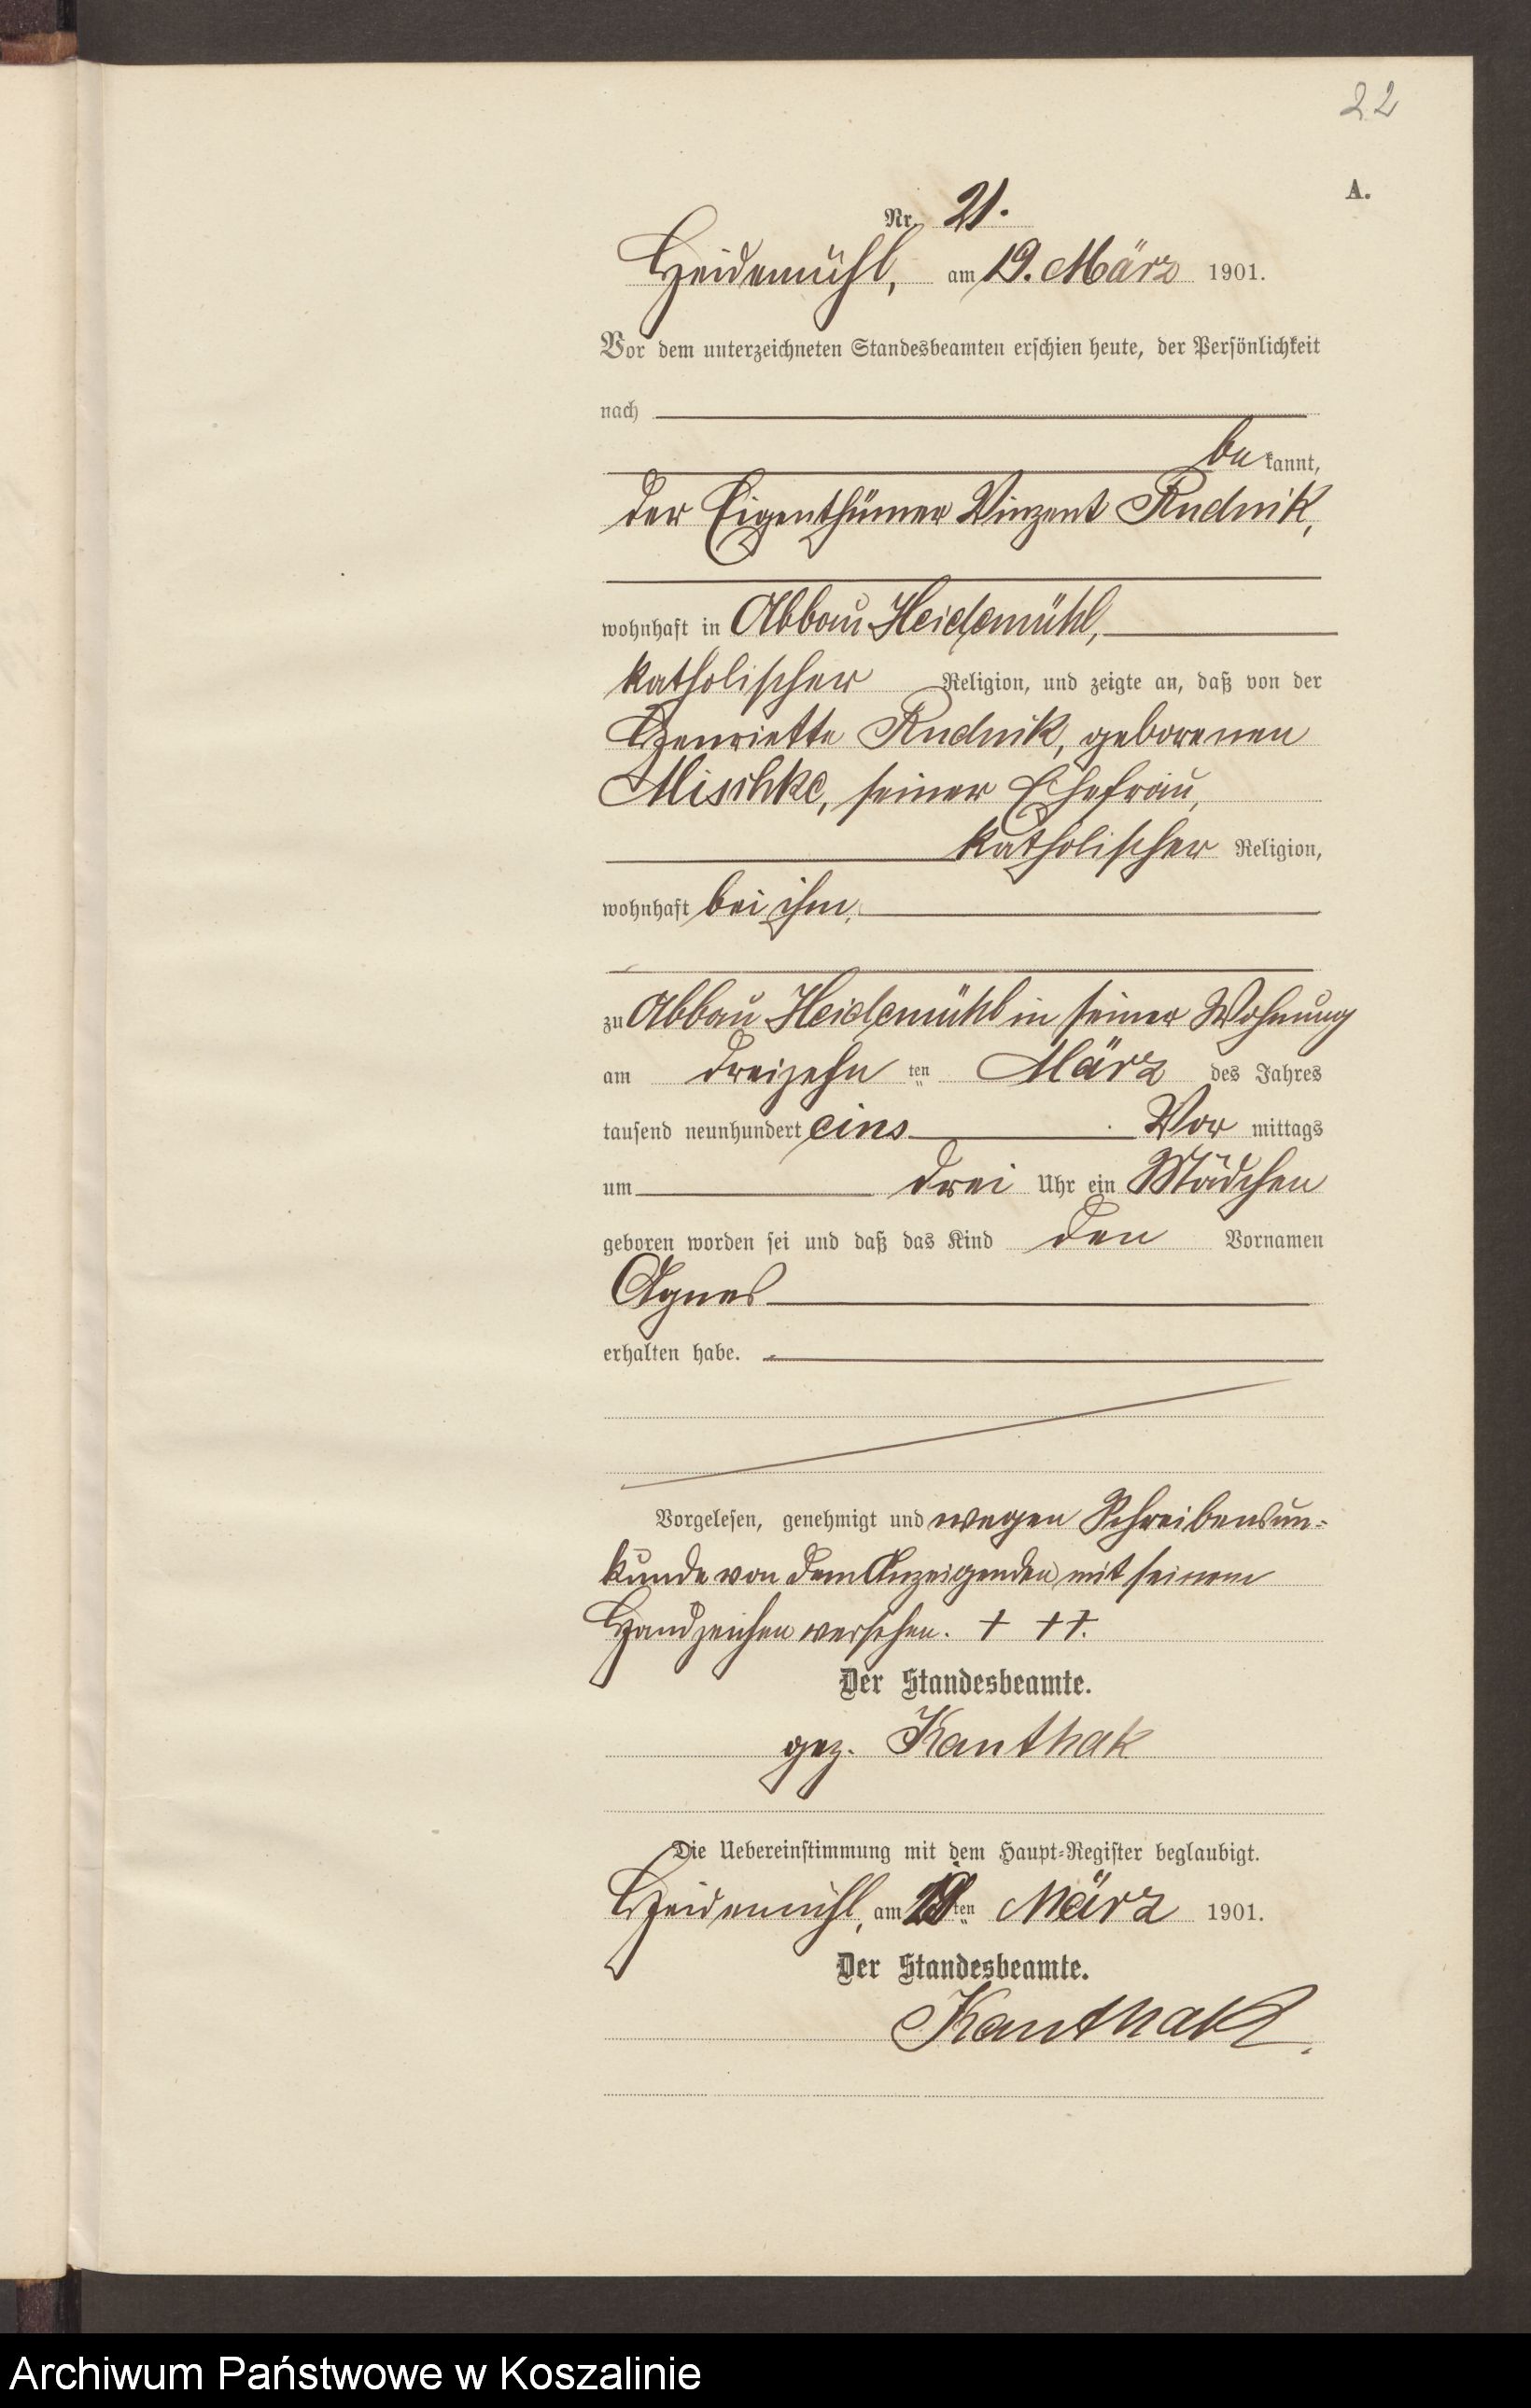 22
A.
Nr. 21.
Heidemühl, am 19. März 1901.
Vor dem unterzeichneten Standesbeamten erschien heute, der Persönlichkeit
nach
be kannt,
der Eigenthümer Vinzent Rudnik,
wohnhaft in Abbau Heidemühl,
katholischer Religion, und zeigte an, daß von der
Henriette Rudnik, geborenen
Mischke, seiner Ehefrau,
katholischer Religion,
wohnhaft bei ihm,
zu Abbau Heidemühl in seiner Wohnung
am dreizehn ten März des Jahres
tausend neunhundert eins Vor mittags
um drei Uhr ein Mädchen
geboren worden sei und daß das Kind den Vornamen
Agnes
erhalten habe.
Vorgelesen, genehmigt und wegen Schreibensun-
kunde von dem Anzeigenden mit seinem
Handzeichen versehen. + ++.
Der Standesbeamte.
gez. Kanthak
Die Uebereinstimmung mit dem Haupt-Register beglaubigt.
Heidemühl, am 19ten März 1901.
Der Standesbeamte.
Kanthak.
Archiwum Państwowe w Koszalinie